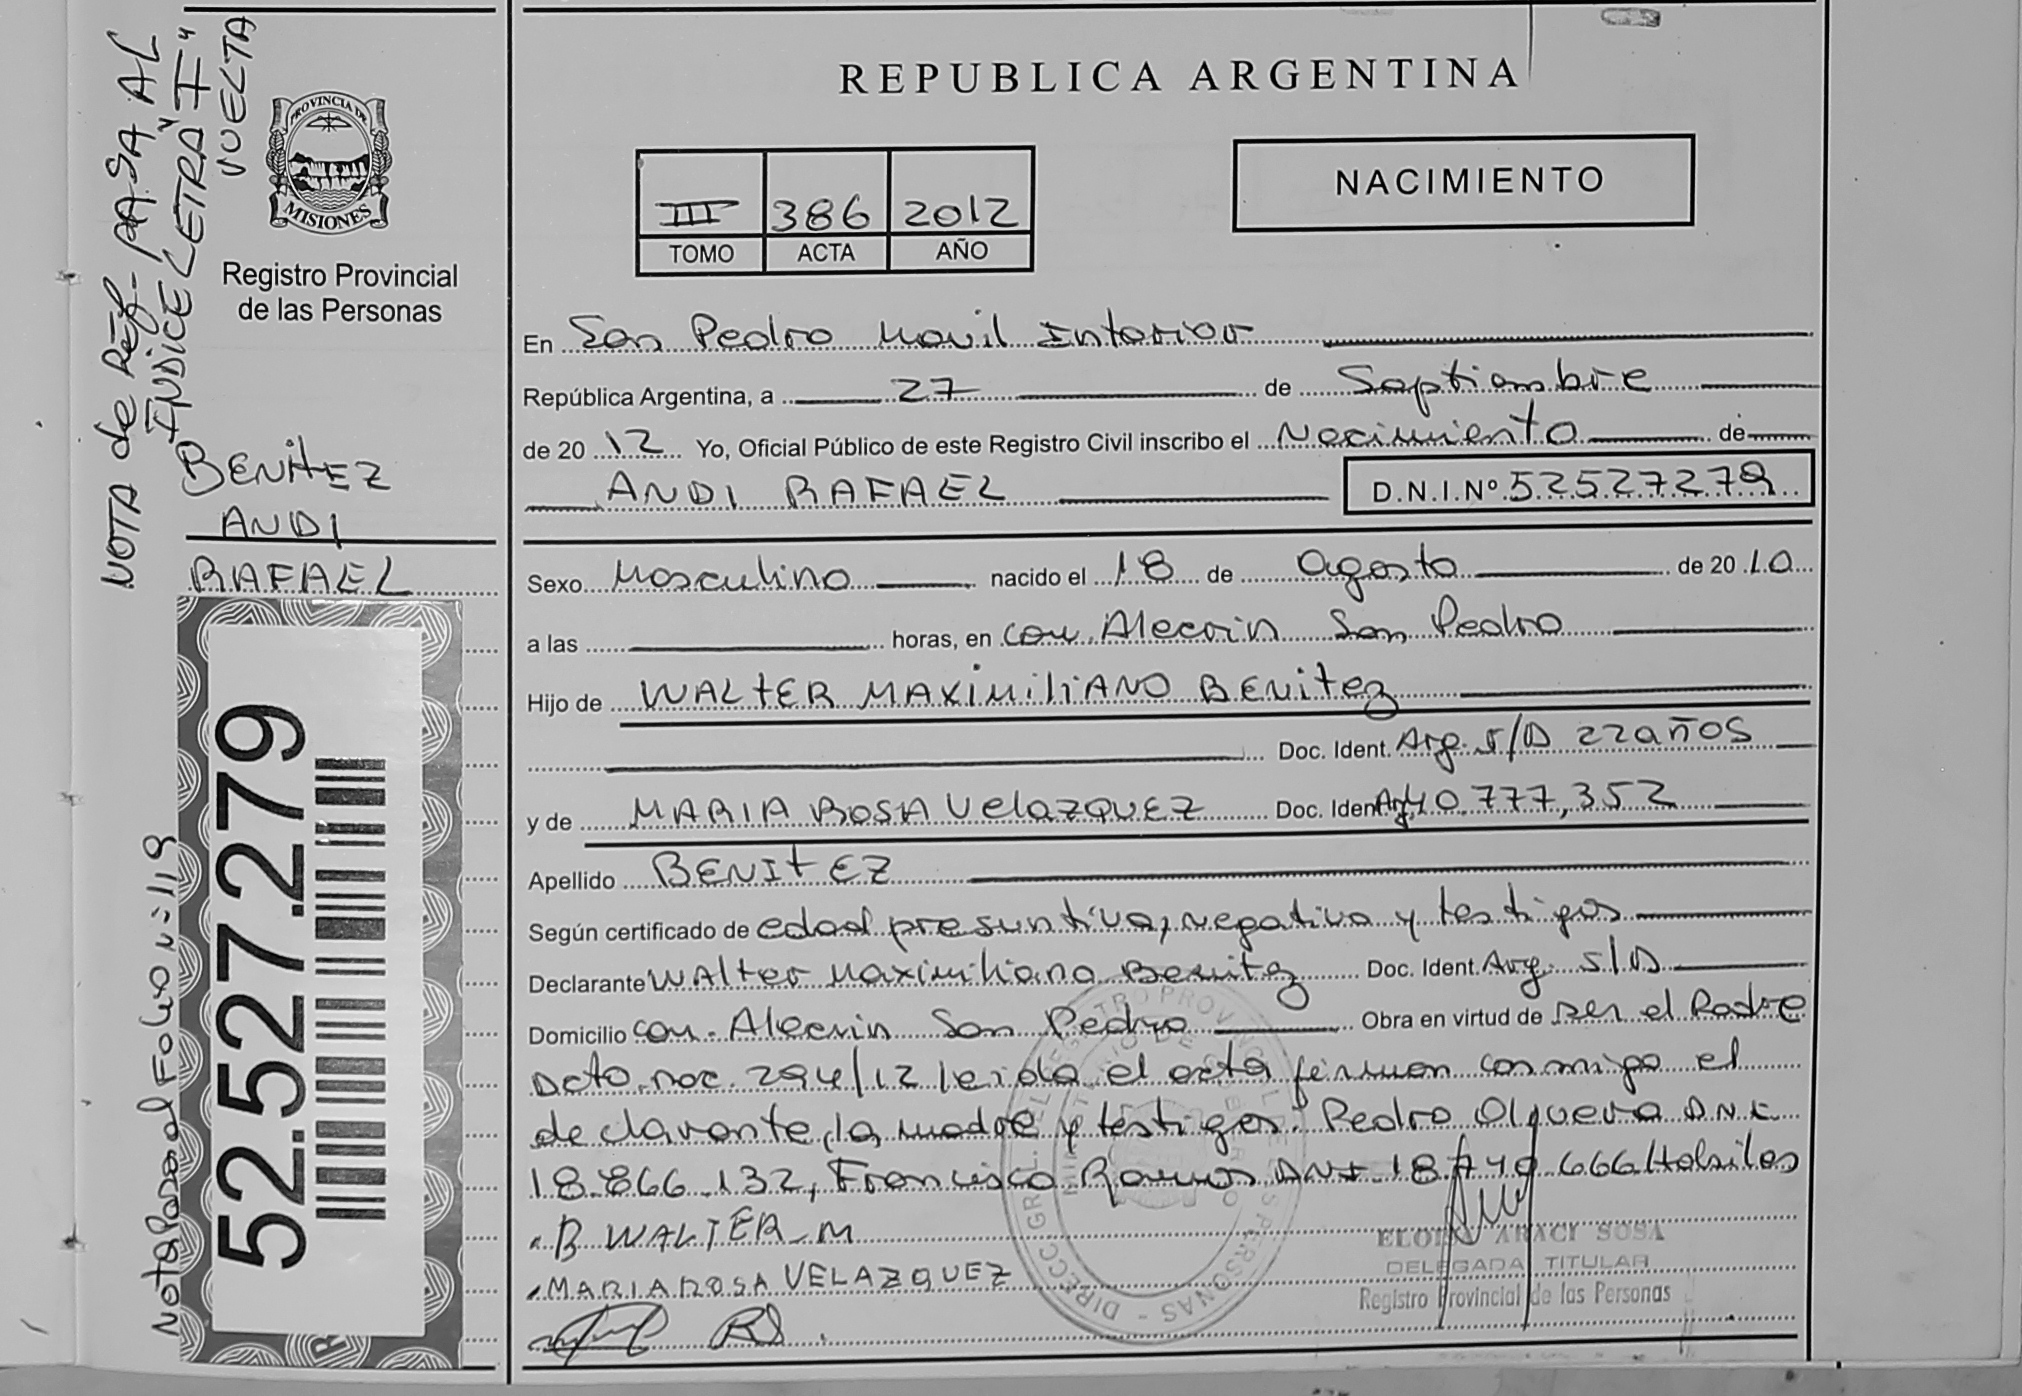 NOTA de Ref- PASA AL
INDICE LETRA "F"
VUELTA
PROVINCIA DE
MISIONES
Registro Provincial
de las Personas
BENITEZ
ANDI
RAFAEL
Nota Pasa al Folio Nº 119
52.527.279
REPUBLICA ARGENTINA
III 386 2012
TOMO ACTA AÑO
NACIMIENTO
En San Pedro Movil Interior
República Argentina, a 27 de Septiembre
de 2012 Yo, Oficial Público de este Registro Civil inscribo el Nacimiento de
ANDI RAFAEL D.N.I.Nº 52527279
Sexo Masculino nacido el 18 de agosto de 2010
a las horas, en con. Alecrin San Pedro
Hijo de WALTER MAXIMILIANO BENITEZ
Doc. Ident. Arg. s/D 22 años
y de MARIA ROSA VELAZQUEZ Doc. Ident. Arg. 40.777,352
Apellido BENITEZ
Según certificado de edad presuntiva, negativa y testigos
Declarante Walter Maximiliano Benitez Doc. Ident. Arg. s/D
Domicilio con. Alecrin San Pedro Obra en virtud de ser el Padre
Dcto. nac. 294/12 leida el acta firman conmigo el
declarante, la madre y testigos: Pedro Olguera D.N.I.
18.866.132, Francisco Ramos DNI 18 666
B WALTER M
MARIA ROSA VELAZQUEZ
ARACI SOSA
DELEGADA TITULAR
Registro Provincial de las Personas